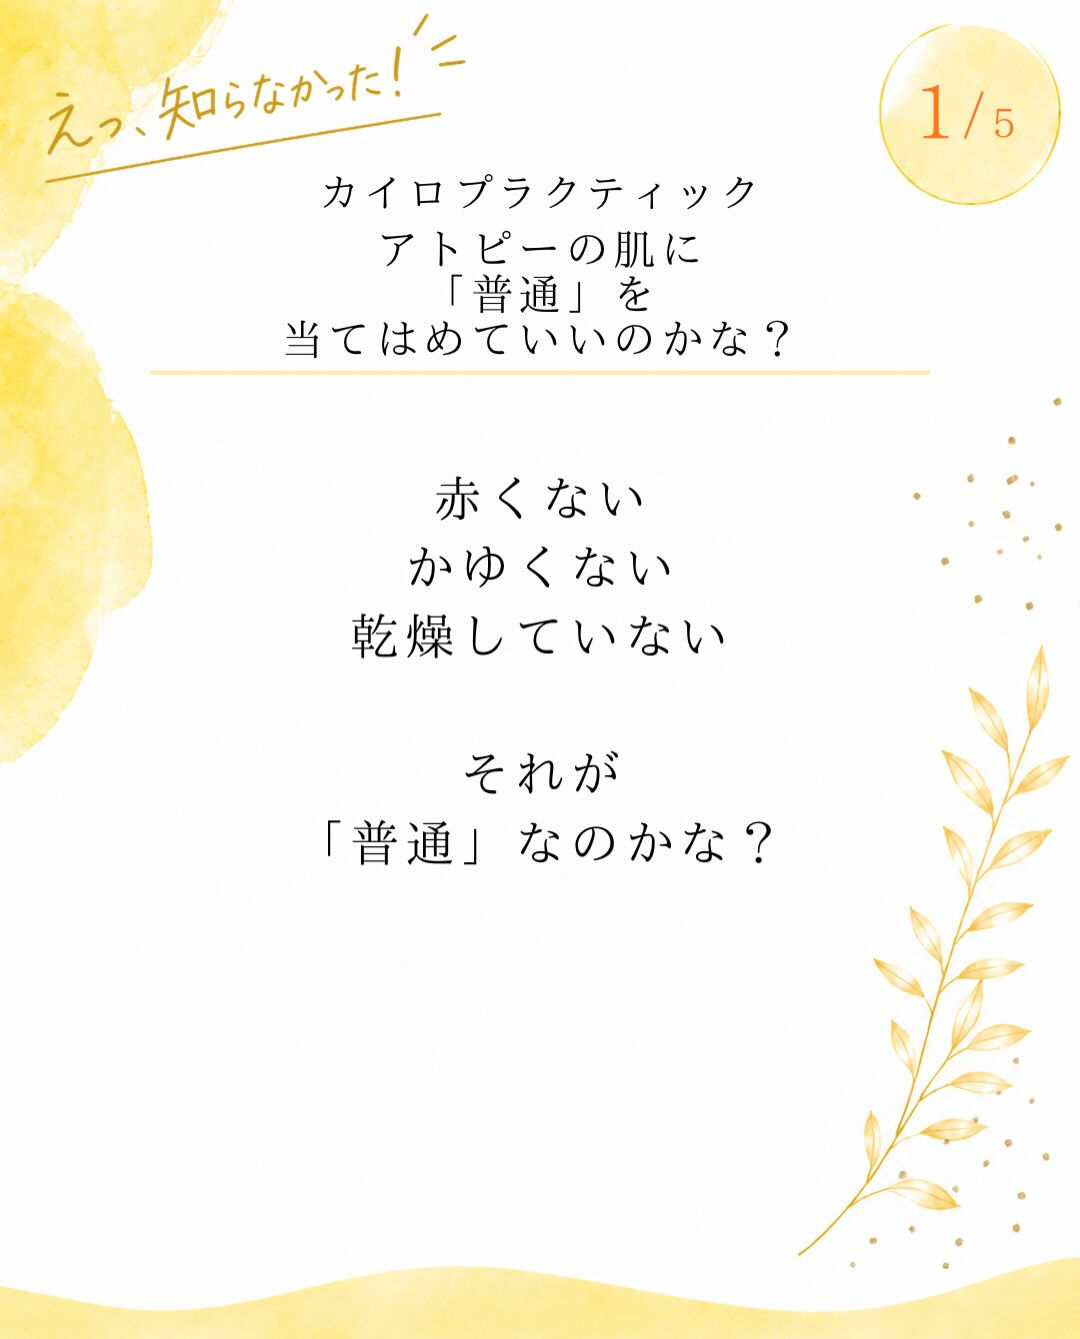 えっ、知らなかった！
1/5
カイロプラクティック
アトピーの肌に
「普通」を
当てはめていいのかな？
赤くない
かゆくない
乾燥していない
それが
「普通」なのかな？